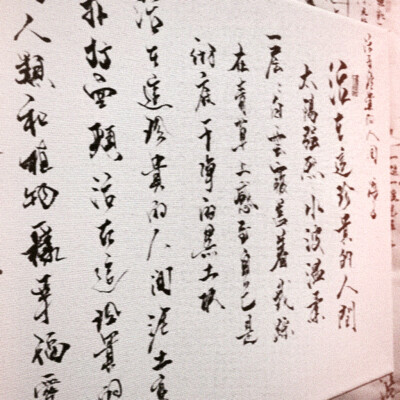 活在珍貴的人間 海子
活在這珍貴的人間
太陽強烈 水波溫柔
一層層白雲覆蓋着 我踩
在青草上感到自己是
徹底干淨的黑土塊
活在這珍貴的人間 泥土高
扑打面頰 活在這珍貴的
人類和植物一樣幸福